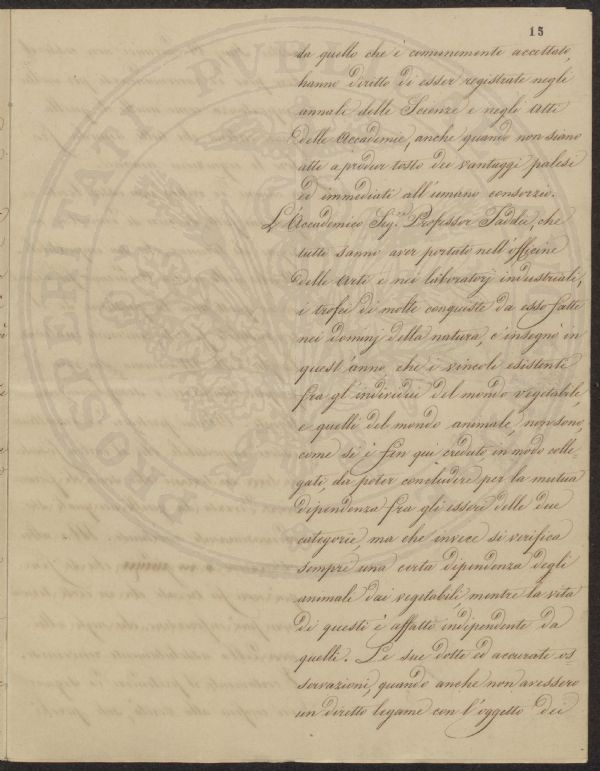 15
da quello che è comunemente accettato,
hanno diritto di esser registrate negli
annali delle Scienze e negli Atti
delle Accademie, anche quando non siano
atte a produr tosto dei vantaggi palesi
ed immediati all'umano consorzio.
L'Accademico Sig.re Professor Taddei, che
tutti sanno aver portato nell'officine
delle Arti e nei laboratorj industriali,
i trofei di molte conquiste da esso fatte
nei dominj della natura, c'insegnò in
quest'anno, che i vincoli esistenti
fra gl'individui del mondo vegetabile,
e quelli del mondo animale, non sono,
come si è fin qui creduto in modo colle=
gati, da poter concludere per la mutua
dipendenza fra gli esseri delle due
categorie, ma che invece si verifica
sempre una certa dipendenza degli
animali dai vegetabili, mentre la vita
di questi è affatto indipendente da
quelli. Le sue dotte ed accurate os=
servazioni, quando anche non avessero
un diretto legame con l'oggetto dei
PROSPERITATI PVBL